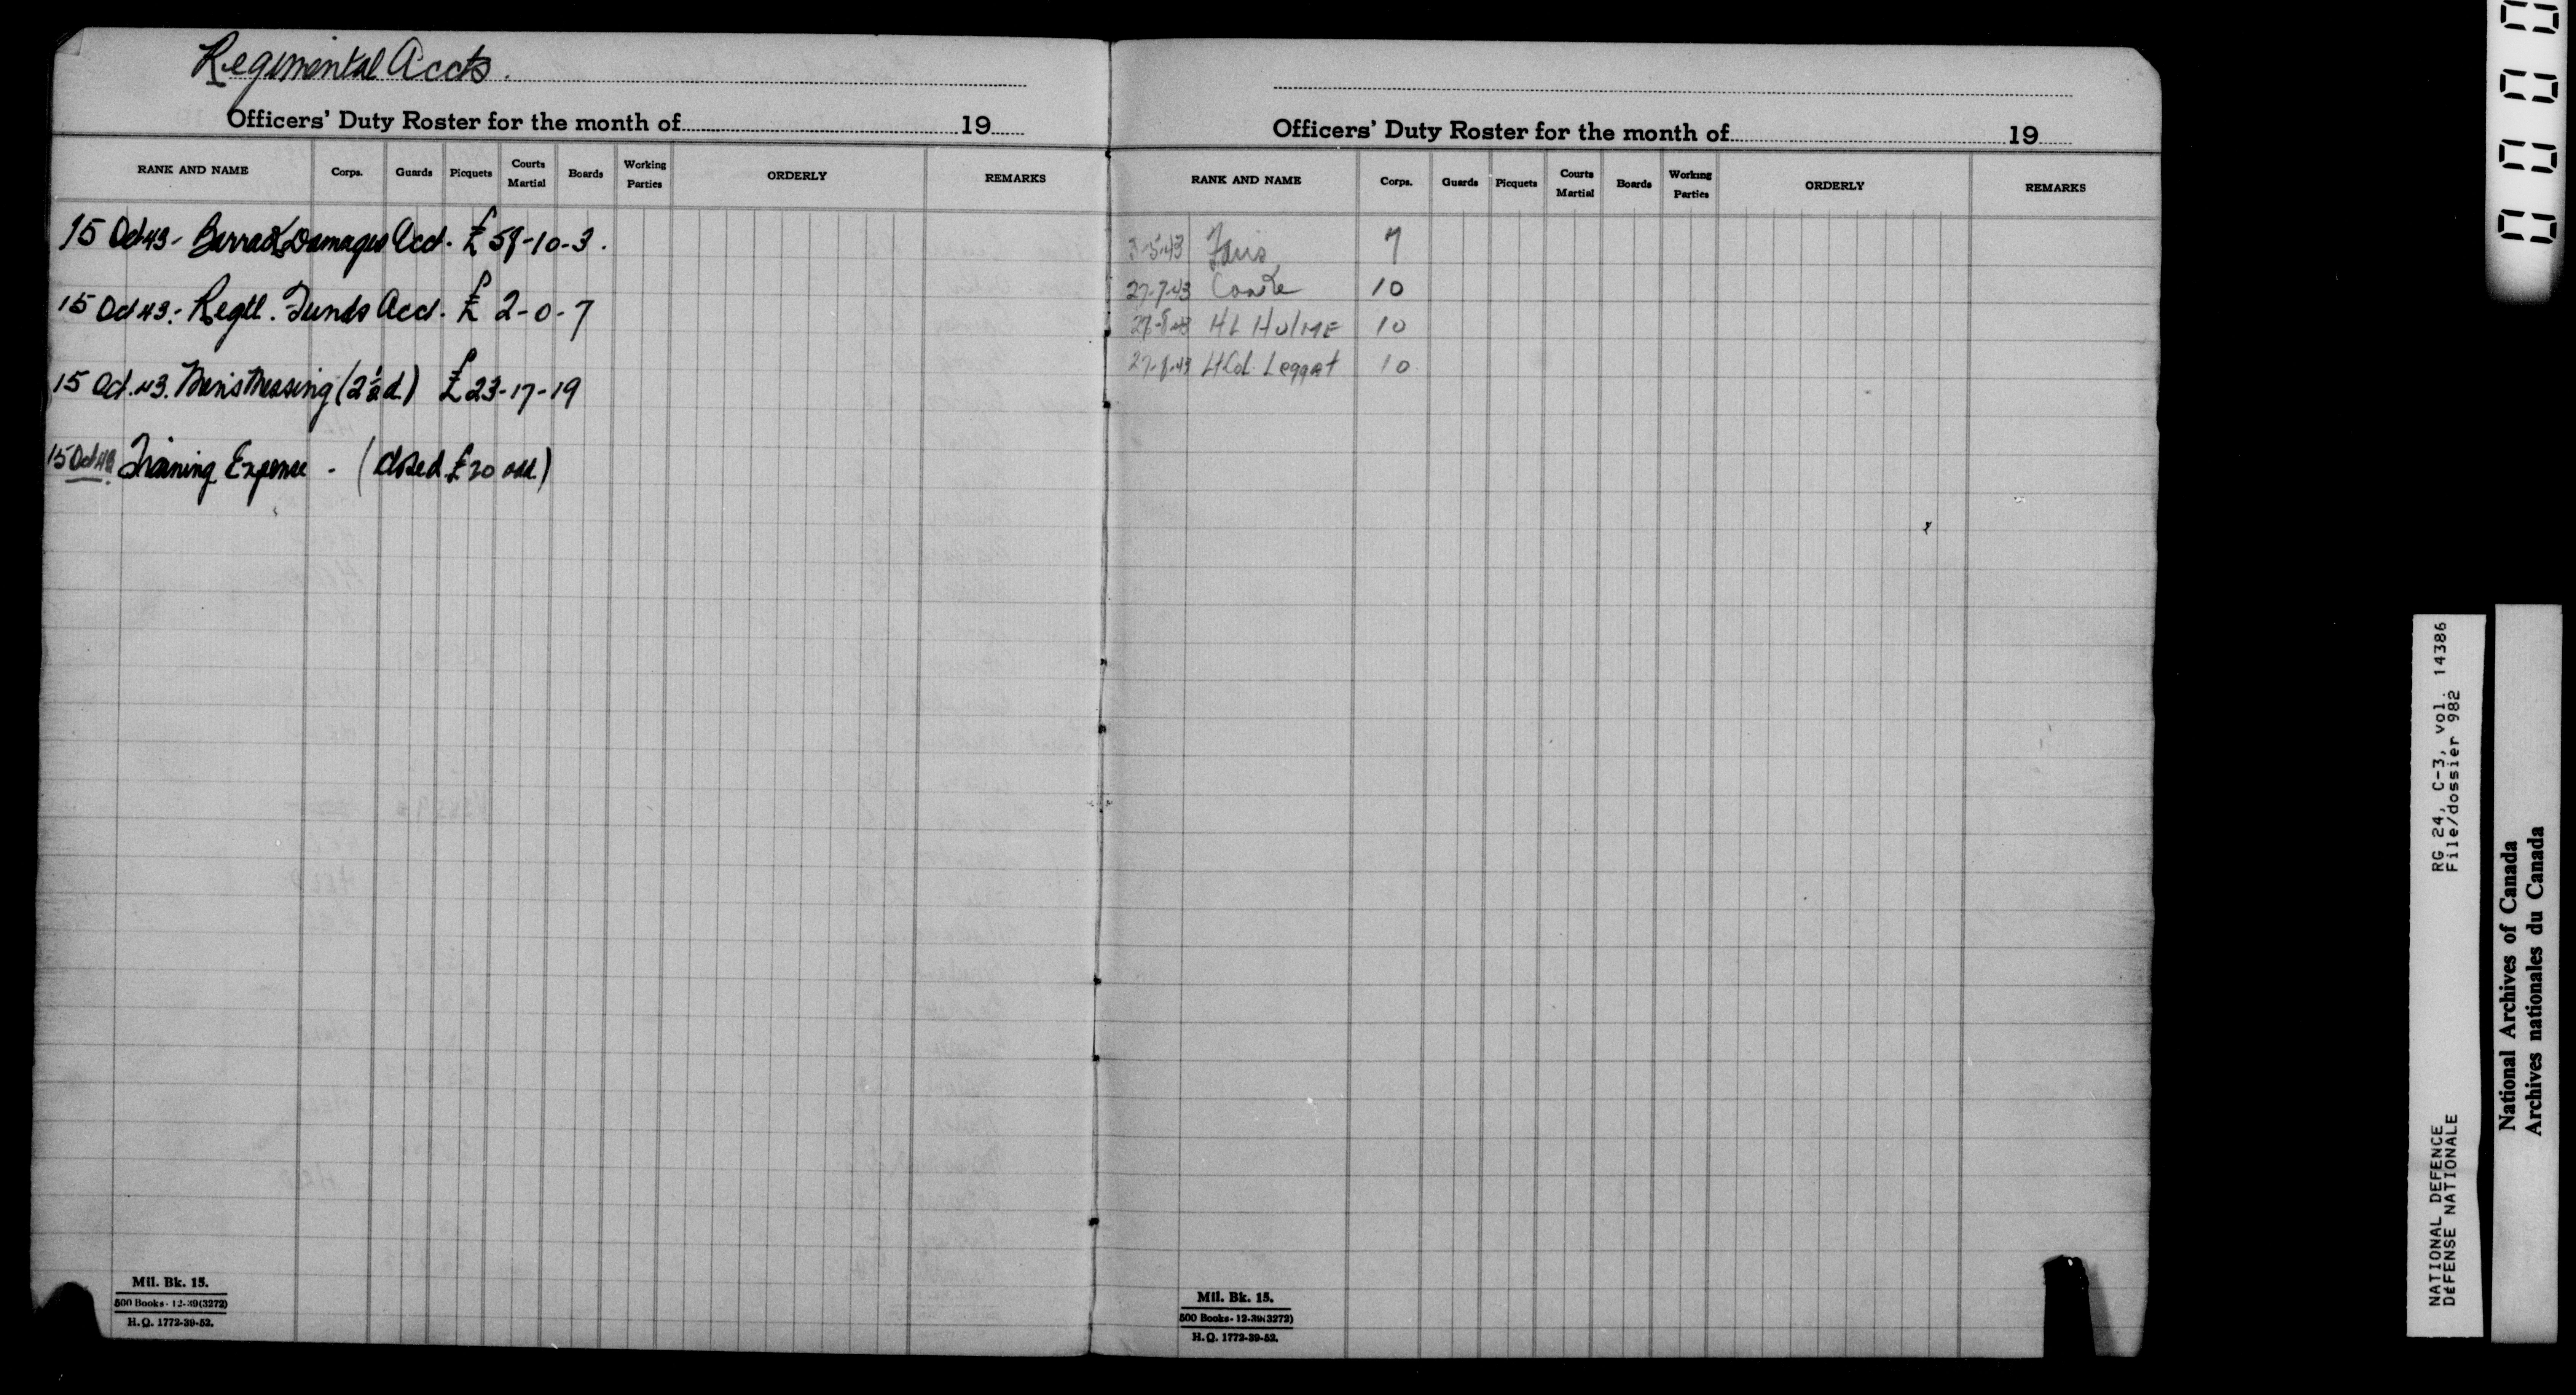 Regimental Accts.
Officers' Duty Roster for the month of 19
RANK AND NAME Corps. Guards Picquets Courts Martial Boards Working Parties ORDERLY REMARKS
15 Oct 43 - Barrack Damages Acct. £ 58-10-3.
15 Oct 43 - Regtl. Funds Acct. £ 2-0-7
15 Oct. 43. Mens Messing (2½d.) £ 23-17-19
15 Oct 43 Training Expense - (closed £20 odd.)
Mil. Bk. 15.
500 Books - 12-39(3272)
H.Q. 1772-39-52.
Officers' Duty Roster for the month of 19
RANK AND NAME Corps. Guards Picquets Courts Martial Boards Working Parties ORDERLY REMARKS
3-5-43 7
27-7-43 10
HL Hulme 10
Lt Col. Leggat 10
Mil. Bk. 15.
500 Books - 12-39(3272)
H.Q. 1772-39-52.
RG 24, C-3, vol. 14386
File/dossier 982
NATIONAL DEFENCE
DÉFENSE NATIONALE
National Archives of Canada
Archives nationales du Canada